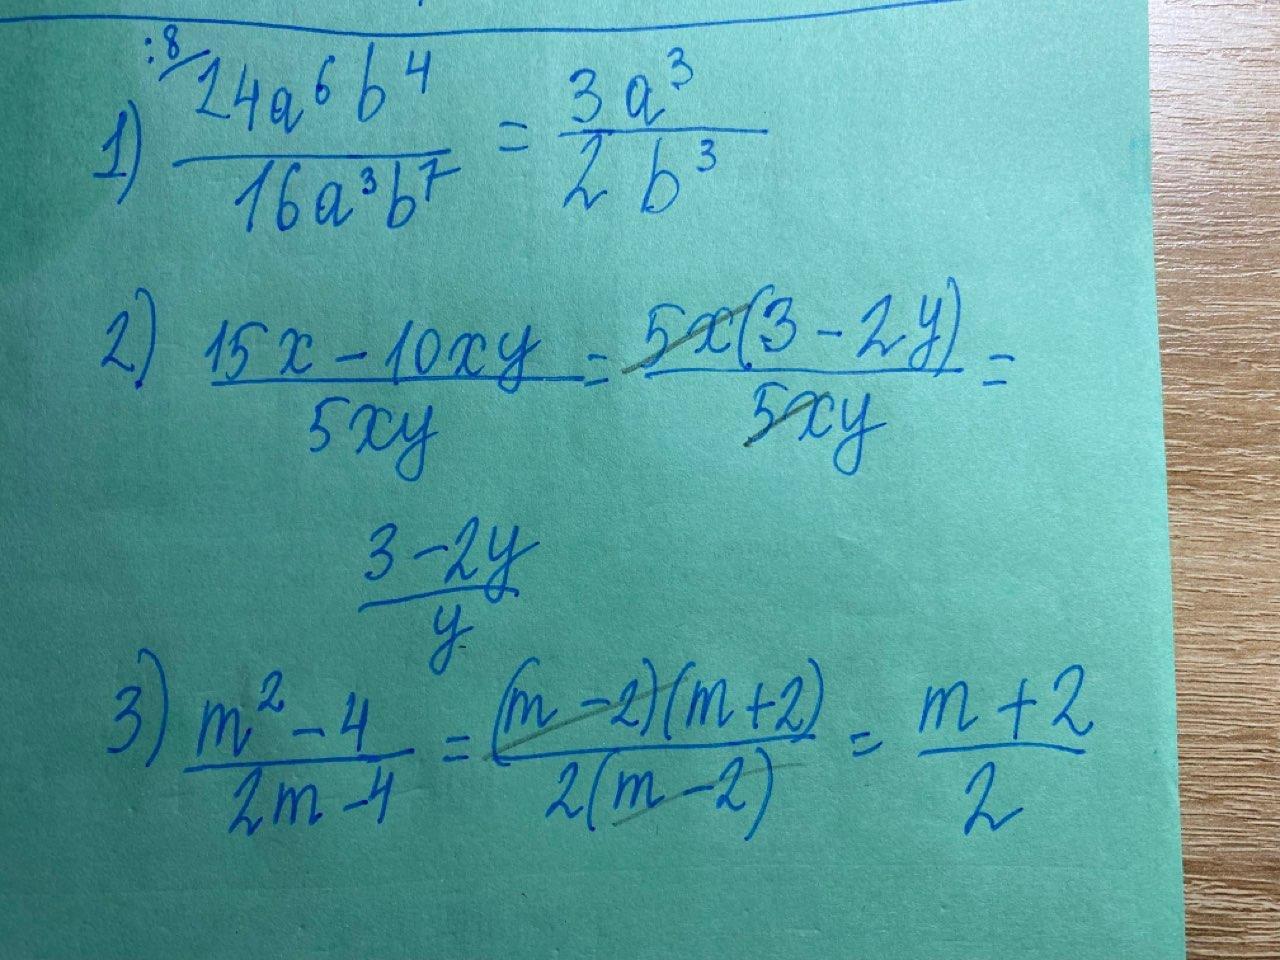 :8
1) 24a⁶b⁴/16a³b⁷ = 3a³/2b³
2) 15x - 10xy/5xy = 5x(3 - 2y)/5xy =
3 - 2y/y
3) m² - 4/2m - 4 = (m - 2)(m + 2)/2(m - 2) = m + 2/2